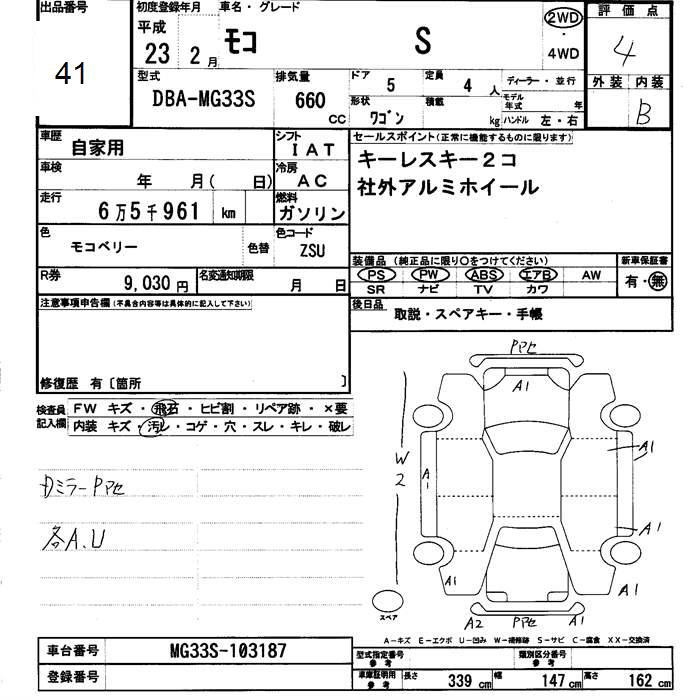 出品番号 41
初度登録年月 平成 23 2月
車名・グレード モコ S
2WD・4WD
評価点 4
外装 内装 B
型式 DBA-MG33S
排気量 660 CC
ドア 5 定員 4 人
形状 ワゴン 積載 kg
ディーラー・並行
モデル年式 年
ハンドル 左・右
車歴 自家用
シフト IAT
車検 年 月( 日)
冷房 AC
走行 6万5千961 km
燃料 ガソリン
色 モコベリー 色替
色コード ZSU
R券 9,030円
名変通知期限 月 日
セールスポイント(正常に機能するものに限ります)
キーレスキー2コ
社外アルミホイール
装備品 (純正品に限り○をつけてください)
PS PW ABS エアB AW
SR ナビ TV カワ
新車保証書 有・無
後日品 取説・スペアキー・手帳
注意事項申告欄(不具合内容等は具体的に記入して下さい)
修復歴 有〔箇所 〕
検査員記入欄
FW キズ・飛石・ヒビ割・リペア跡・×要
内装 キズ・汚レ・コゲ・穴・スレ・キレ・破レ
Dミラー Pアセ
各A.U
Pアセ
A1
W2
A1
A1
A1
A1
A1
A2 Pアセ A1
スペア
A-キズ E-エクボ U-凹み W-補修跡 S-サビ C-腐食 XX-交換済
車台番号 MG33S-103187
登録番号
型式指定番号 参考
類別区分番号 参考
車庫証明用 参考 長さ 339 cm 幅 147 cm 高さ 162 cm